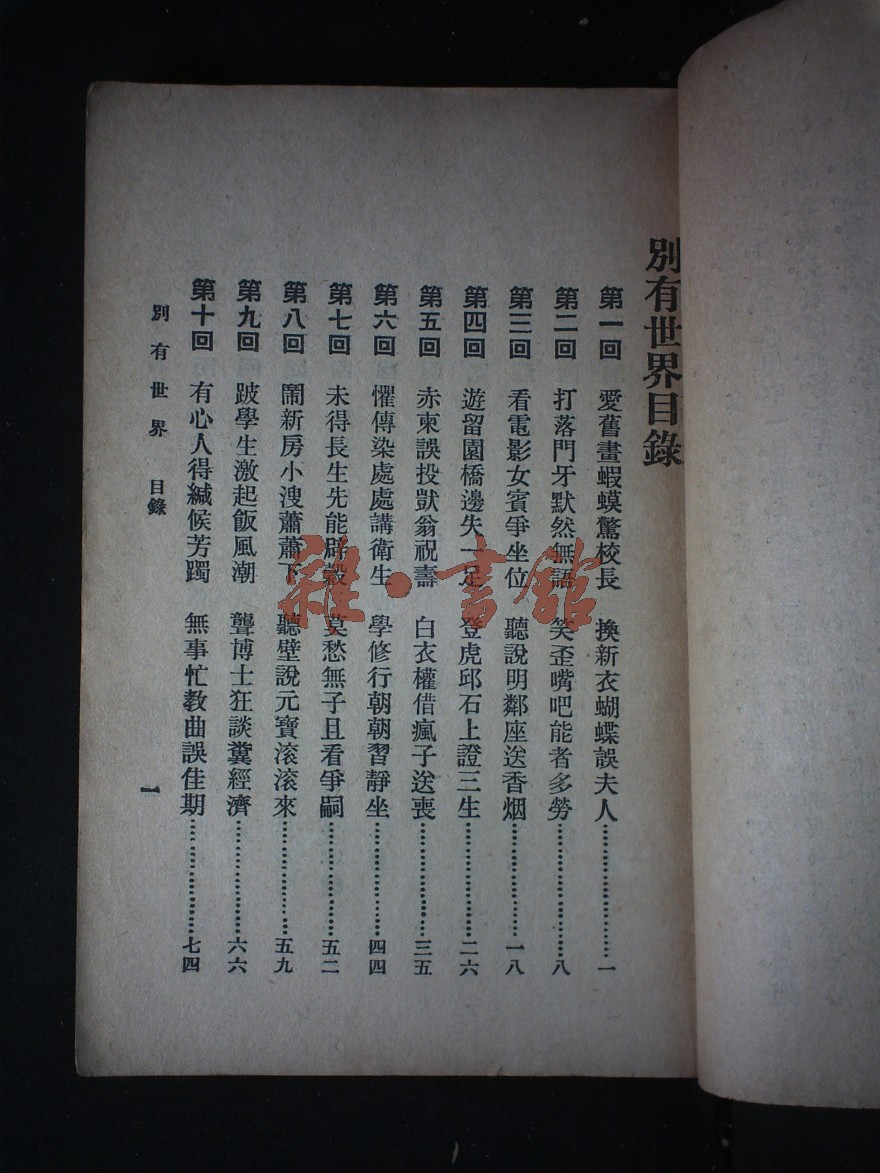 別有世界目錄
第一回 愛舊畫蝦蟆驚校長 換新衣蝴蝶誤夫人…………………一
第二回 打落門牙默然無語 笑歪嘴吧能者多勞…………………八
第三回 看電影女賓爭坐位 聽說明鄰座送香烟…………………一八
第四回 遊留園橋邊失一足 登虎邱石上證三生…………………二六
第五回 赤柬誤投獃翁祝壽 白衣權借瘋子送喪…………………三五
第六回 懼傳染處處講衛生 學修行朝朝習靜坐…………………四四
第七回 未得長生先能辟穀 莫愁無子且看爭嗣…………………五二
第八回 鬧新房小溲蕭蕭下 聽壁說元寶滚滚來…………………五九
第九回 跛學生激起飯風潮 聾博士狂談糞經濟…………………六六
第十回 有心人得緘候芳躅 無事忙教曲誤佳期…………………七四
別有世界 目錄
一
雜·書館